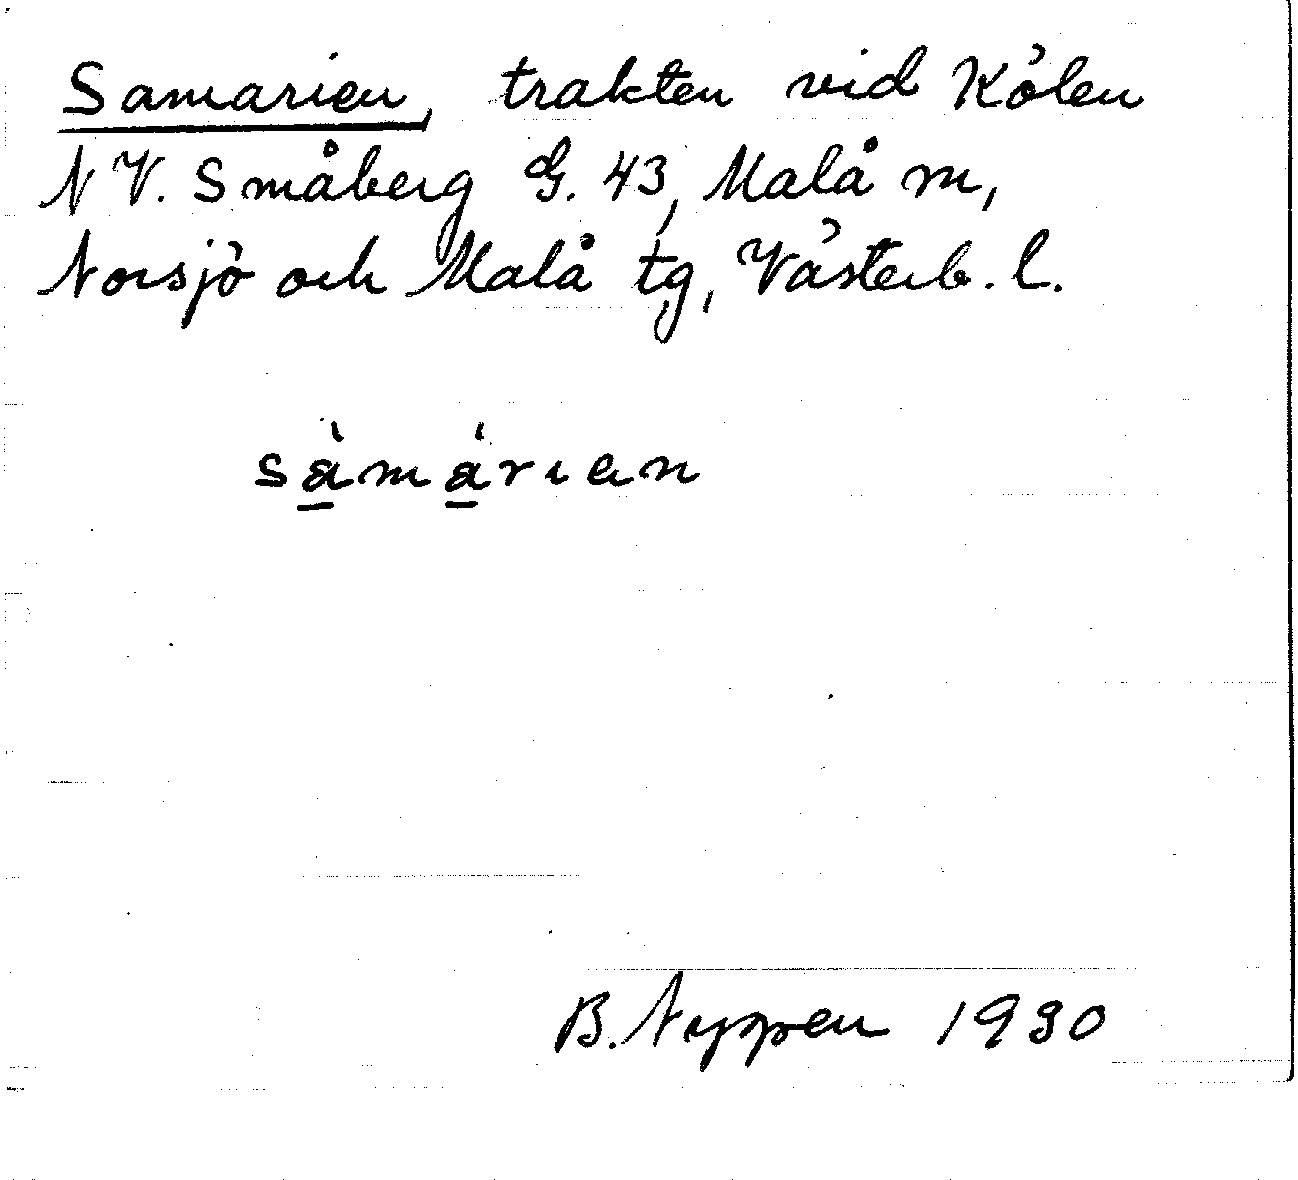 Samarien, trakten vid Kölen
NV. Småberg G. 43, Malå m,
Norsjö och Malå tg, Västerb. l.
sàmárıen
B. Nyppen 1930